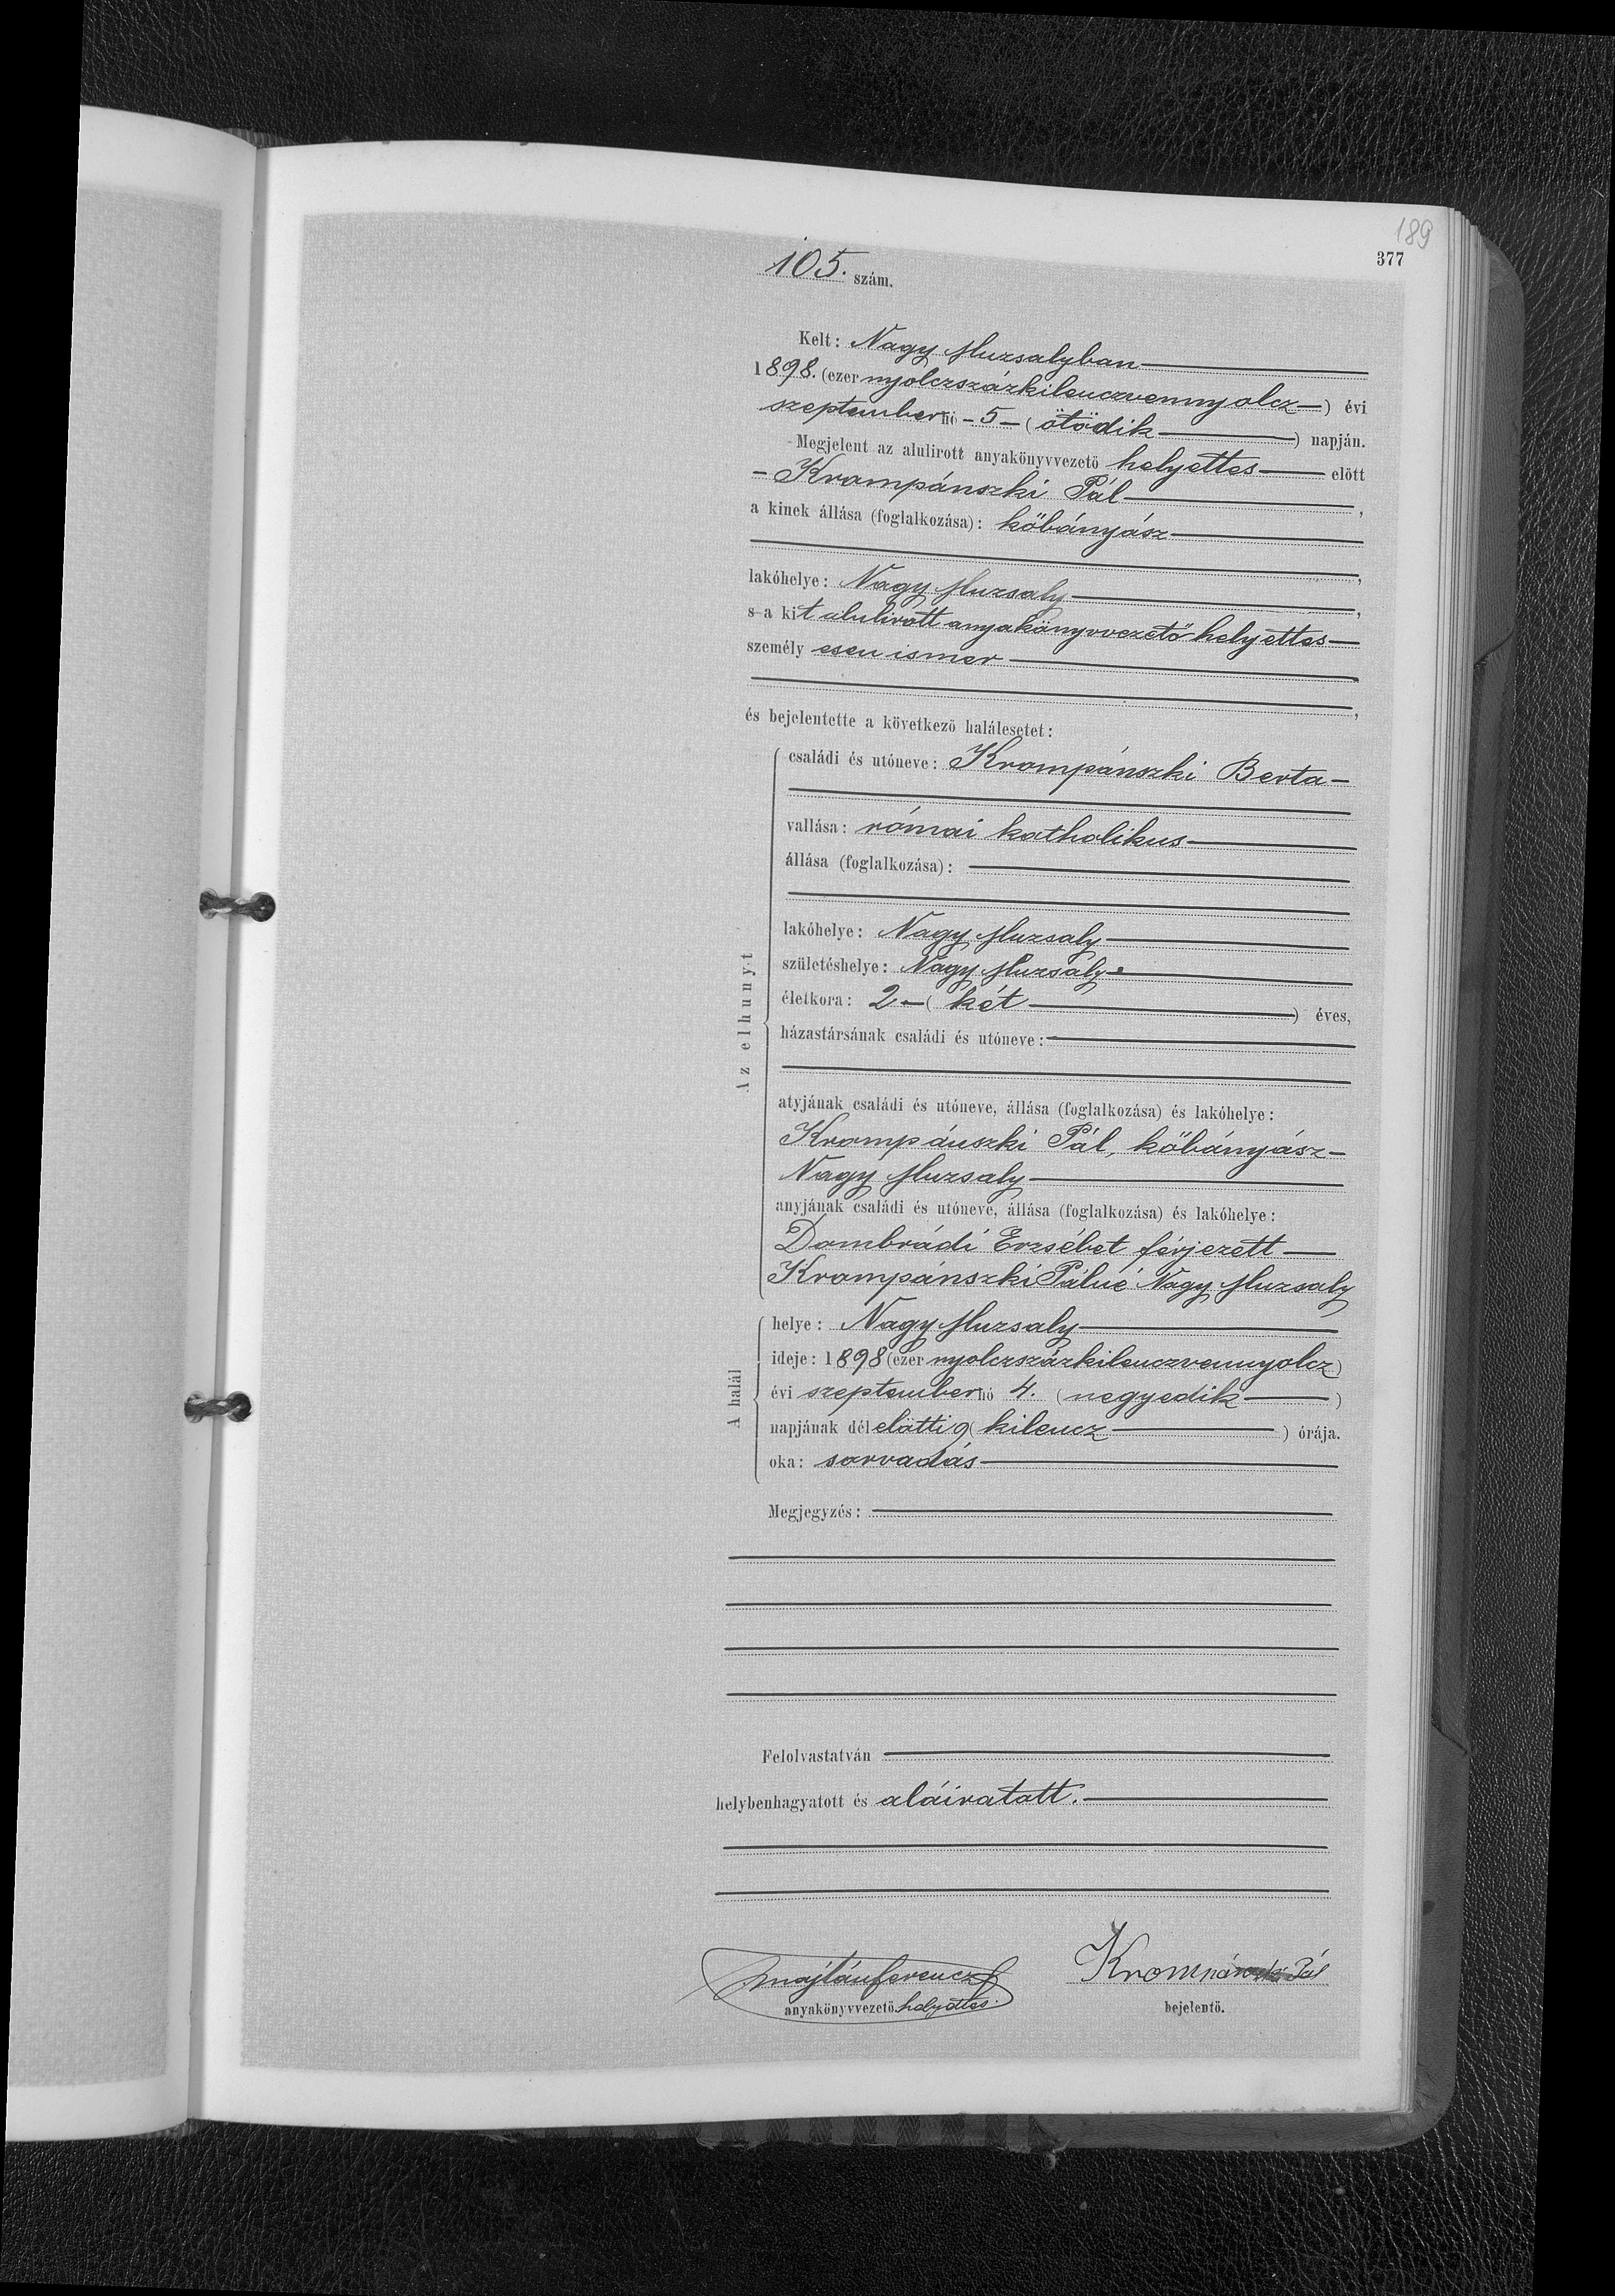 189
377
105. szám.
Kelt: Nagy Muzsalyban
1898. (ezer nyolczszázkilenczvennyolcz) évi
szeptember hó - 5 - (ötödik) napján.
Megjelent az alulirott anyakönyvvezető helyettes előtt
- Krompánszki Pál,
a kinek állása (foglalkozása): kőbányász
,
lakóhelye: Nagy Muzsaly,
s a kit alulirott anyakönyvvezető helyettes
személyesen ismer
,
és bejelentette a következő halálesetet:
Az elhunyt
családi és utóneve: Krompánszki Berta
vallása: római katholikus
állása (foglalkozása):
lakóhelye: Nagy Muzsaly
születéshelye: Nagy Muzsaly
életkora: 2 - (két) éves,
házastársának családi és utóneve:
atyjának családi és utóneve, állása (foglalkozása) és lakóhelye:
Krompánszki Pál, kőbányász
Nagy Muzsaly
anyjának családi és utóneve, állása (foglalkozása) és lakóhelye:
Dombrádi Erzsébet férjezett
Krompánszki Pálné Nagy Muzsaly
A halál
helye: Nagy Muzsaly
ideje: 1898 (ezer nyolczszázkilenczvennyolcz)
évi szeptember hó 4. (negyedik)
napjának délelőtti 9 (kilencz) órája.
oka: sorvadás
Megjegyzés:
Felolvastatván
helybenhagyatott és aláiratatt.
Majláth Ferencz Krompánszki Pál
anyakönyvvezető helyettes. bejelentő.